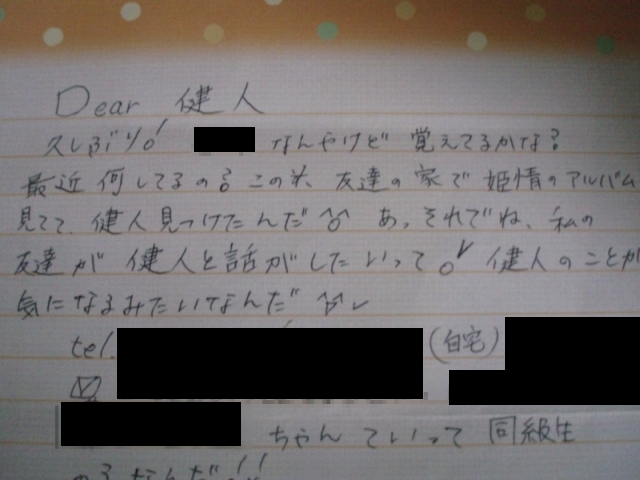 Dear 健人
久しぶり！ なんやけど 覚えてるかな？
最近 何してるの？ この前、友達の家で 姫情のアルバム
見てて、健人見つけたんだ^^ あ、それでね、私の
友達が 健人と話がしたいって。 健人のことが
気になるみたいなんだ^^
tel. (自宅)
ちゃん ていって 同級生
の子なんだ!!